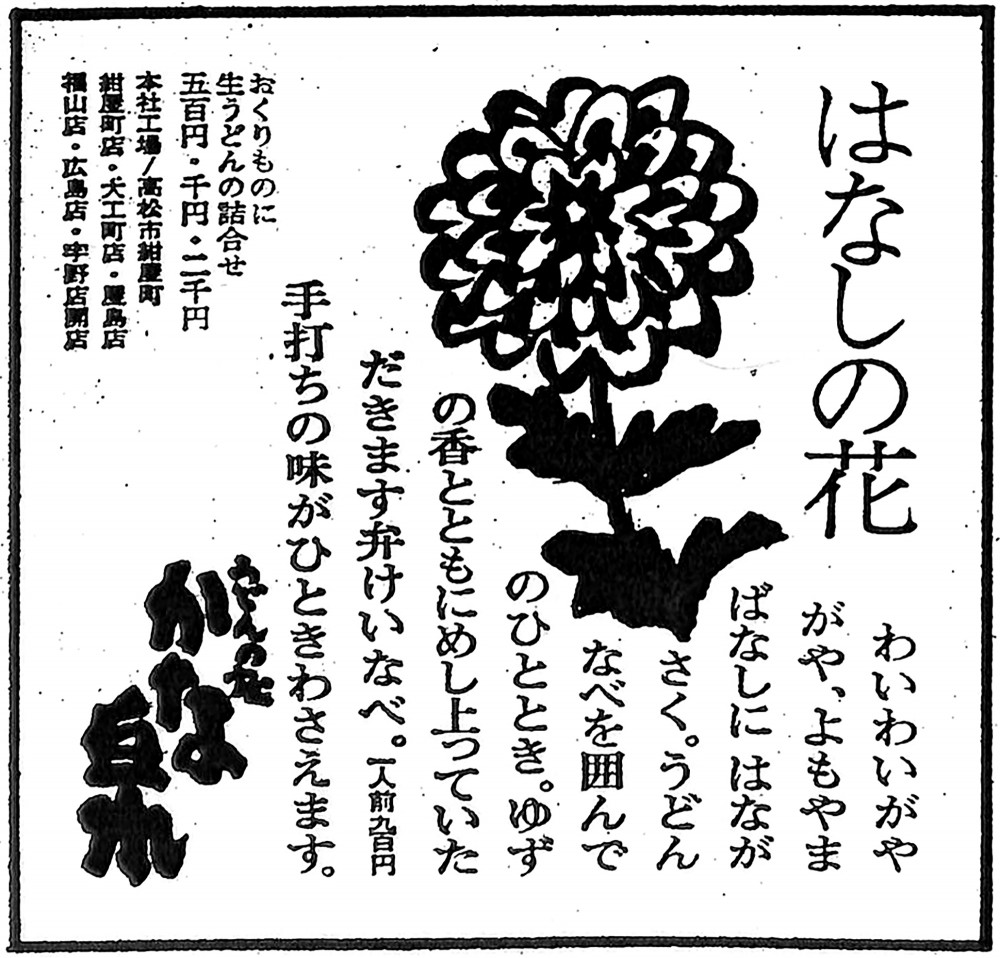 はなしの花
わいわいがや
がや、よもやま
ばなしに はなが
さく。うどん
なべを囲んで
のひととき。ゆず
の香とともにめし上っていた
だきます弁けいなべ。一人前九百円
手打ちの味がひときわさえます。
おくりものに
生うどんの詰合せ
五百円・千円・二千円
本社工場/高松市紺屋町
紺屋町店・大工町店・屋島店
福山店・広島店・宇野店開店
かな泉